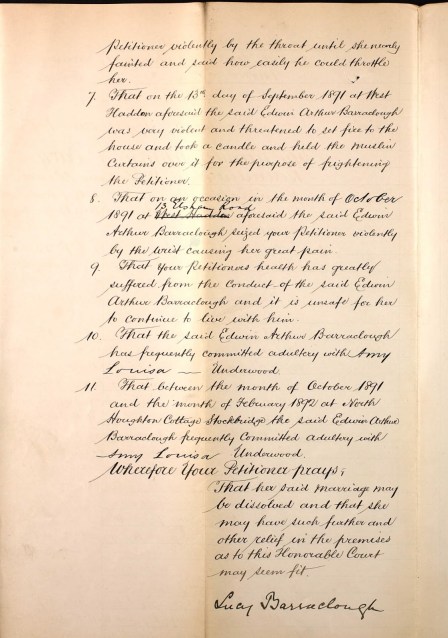 Petitioner violently by the throat until she nearly
fainted and said how easily he could throttle
her.
7. That on the 13th day of September 1891 at West
Haddon aforesaid the said Edwin Arthur Barraclough
was very violent and threatened to set fire to the
house and took a candle and held the muslin
Curtains over it for the purpose of frightening
the Petitioner.
8. That on an occasion in the month of October
13 Road
1891 at West Haddon aforesaid the said Edwin
Arthur Barraclough seized your Petitioner violently
by the wrist causing her great pain.
9. That your Petitioners health has greatly
suffered from the conduct of the said Edwin
Arthur Barraclough and it is unsafe for her
to continue to live with him.
10. That the said Edwin Arthur Barraclough
has frequently committed adultery with Amy
Louisa — Underwood.
11. That between the month of October 1891
and the month of February 1892 at North
Houghton Cottage Stockbridge the said Edwin Arthur
Barraclough frequently committed adultery with
Amy Louisa Underwood.
Wherefore Your Petitioner prays,
That her said marriage may
be dissolved and that she
may have such further and
other relief in the premises
as to this Honorable Court
may seem fit.
Lucy Barraclough